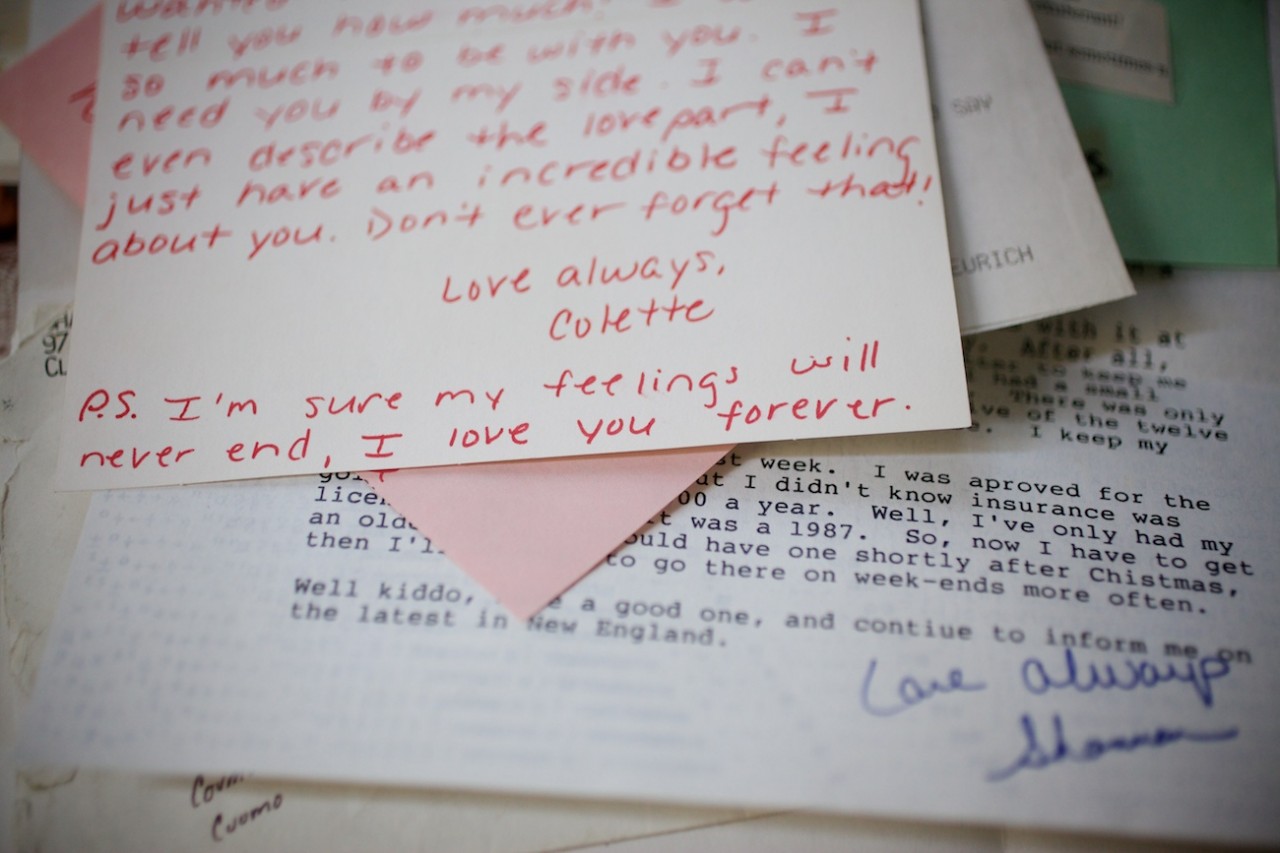 tell you how much! I
so much to be with you. I
need you by my side. I can't
even describe the love part, I
just have an incredible feeling
about you. Don't ever forget that!
Love always,
Colette
P.S. I'm sure my feelings will
never end, I love you forever.
SAY
EURICH
97
CL
with it at
After all,
to keep me
had a small
There was only
ve of the twelve
I keep my
st week. I was aproved for the
ut I didn't know insurance was
00 a year. Well, I've only had my
an old t was a 1987. So, now I have to get
then I'l ould have one shortly after Chistmas,
to go there on week-ends more often.
Well kiddo, e a good one, and contiue to inform me on
the latest in New England.
Love always
Shannon
Cuomo